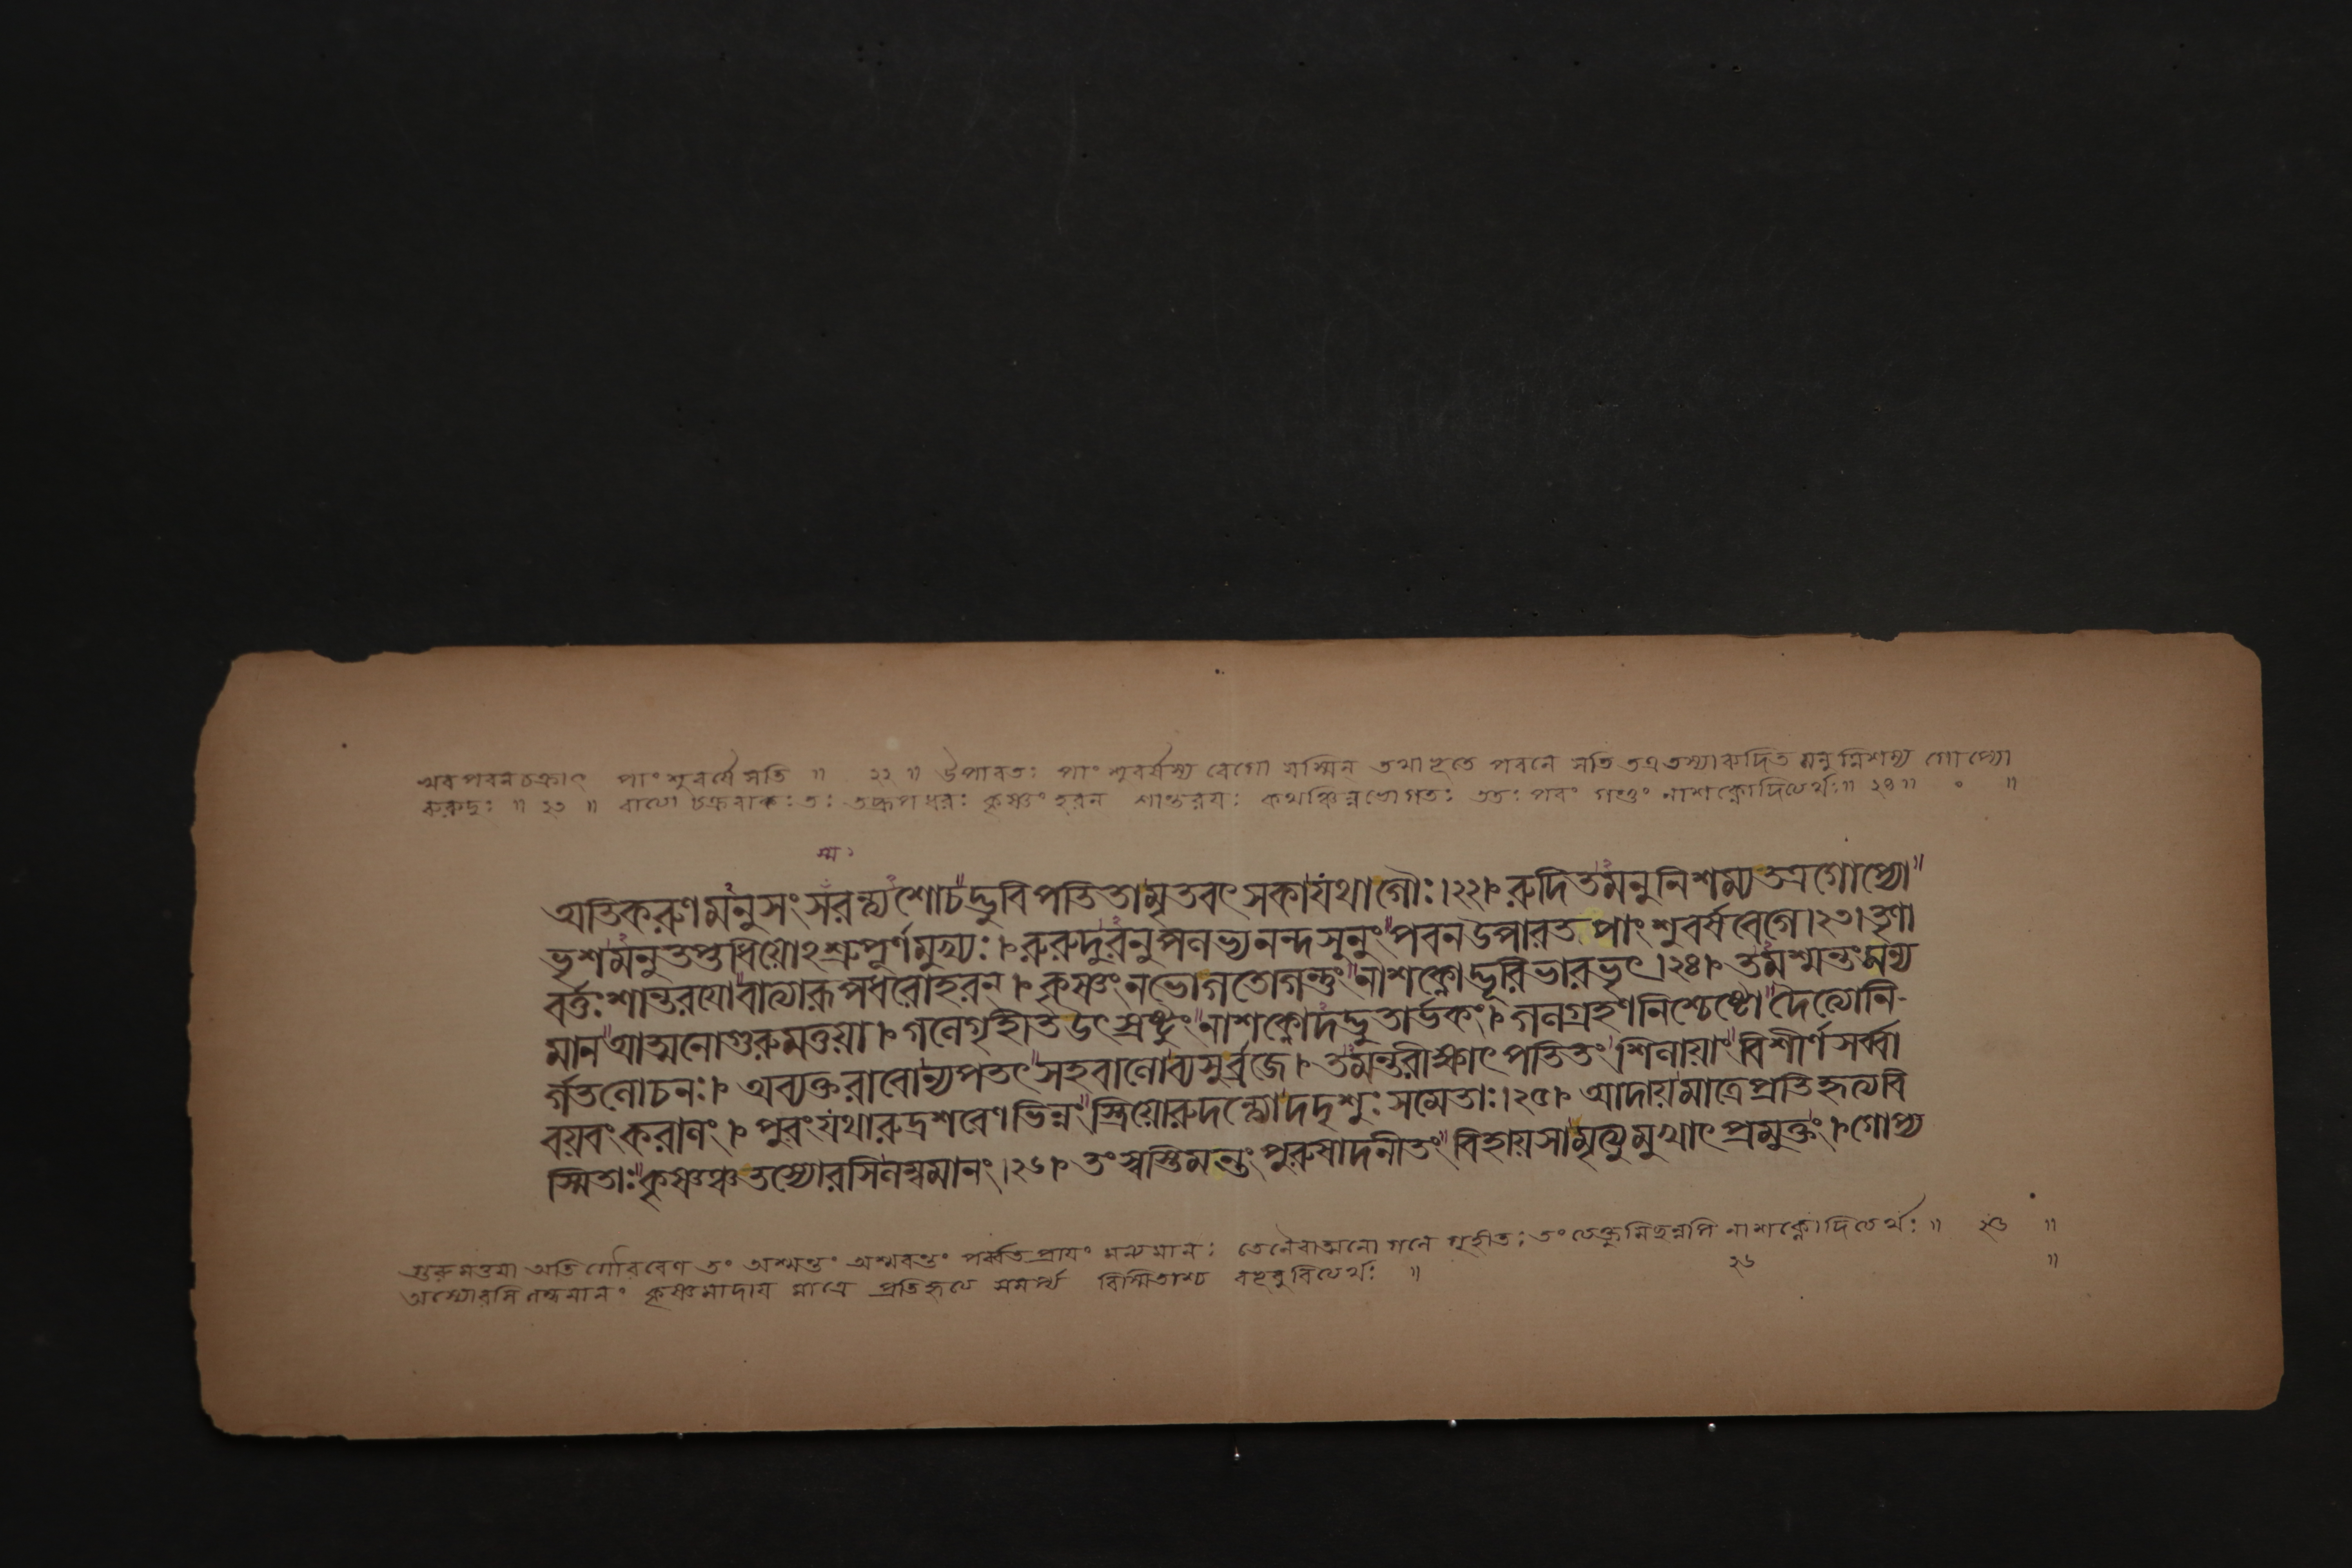 অব পবনচক্রাৎ পাংশুবর্ষে সতি ॥ ২২ ॥ উপারতঃ পাংশুবর্ষস্য বেগো যস্মিন্ তথাভূতে পবনে সতি তত্র তস্যারুদিত মনু নিশম্য গোপ্যো
রুরুদুঃ ॥ ২৩ ॥ তদ্রূপধরঃ কৃষ্ণং হরন্ শান্তরয়ঃ কথঞ্চিন্নভোগতঃ ততঃ পরং গন্তুং নাশক্নোদিত্যর্থঃ ॥ ২৪ ॥ ॰ ॥
স্ম ২
অতিকরুণমনুসংসরন্ত্যশোচদ্ভুবিপতিতামৃতবৎসকাযথাগৌঃ।২২। রুদিতমনুনিশম্যতত্রগোপ্যো
ভৃশমনুতপ্তধিয়োঽশ্রুপূর্ণমুখ্যঃ। রুরুদুরনুপলভ্যনন্দসূনুং পবনউপারতপাংশুবর্ষবেগে।২৩। তৃণা
বর্ত্তঃশান্তরয়োবাত্যারূপধরোহরন্। কৃষ্ণংনভোগতোগন্তুং নাশক্নোদ্ভূরিভারভৃৎ।২৪। তমশ্মন্তংমন্য
মানআত্মনোগুরুমত্তয়া। গলেগৃহীতউৎস্রষ্টুং নাশক্নোদদ্ভুতার্ভকং। গলগ্রহণনিশ্চেষ্টো দৈত্যোনি-
র্গতলোচনঃ। অব্যক্তরাবোন্যপতৎ সহবালোব্যসুর্ব্রজে। তমন্তরীক্ষাৎপতিতং শিলায়াং বিশীর্ণসর্ব্বা
বয়বংকরালং। পুরংযথারুদ্রশরেণভিন্নং স্ত্রিয়োরুদন্ত্যোদদৃশুঃ সমেতাঃ।২৫। আদায়মাত্রেপ্রতিহৃত্যবি
স্মিতাঃ কৃষ্ণঞ্চতস্যোরসিলম্বমানং।২৬। তংস্বস্তিমন্তংপুরুষাদনীতং বিহায়সামৃত্যুমুখাৎপ্রমুক্তং। গোপ্য
গুরুমত্তয়া অতিগৌরবেণ তং অশ্মন্তং অশ্মবন্তং পর্ব্বতপ্রায়ং মন্যমানঃ তেনৈবাত্মনো গলে গৃহীতঃ তং নাশক্নোদিত্যর্থঃ ॥ ২৫ ॥
তস্যোরসি লম্বমানং কৃষ্ণমাদায় মাত্রে প্রতিহৃত্য সমর্প্য বিস্মিতাশ্চ বভূবুরিত্যর্থঃ ॥ ২৬ ॥